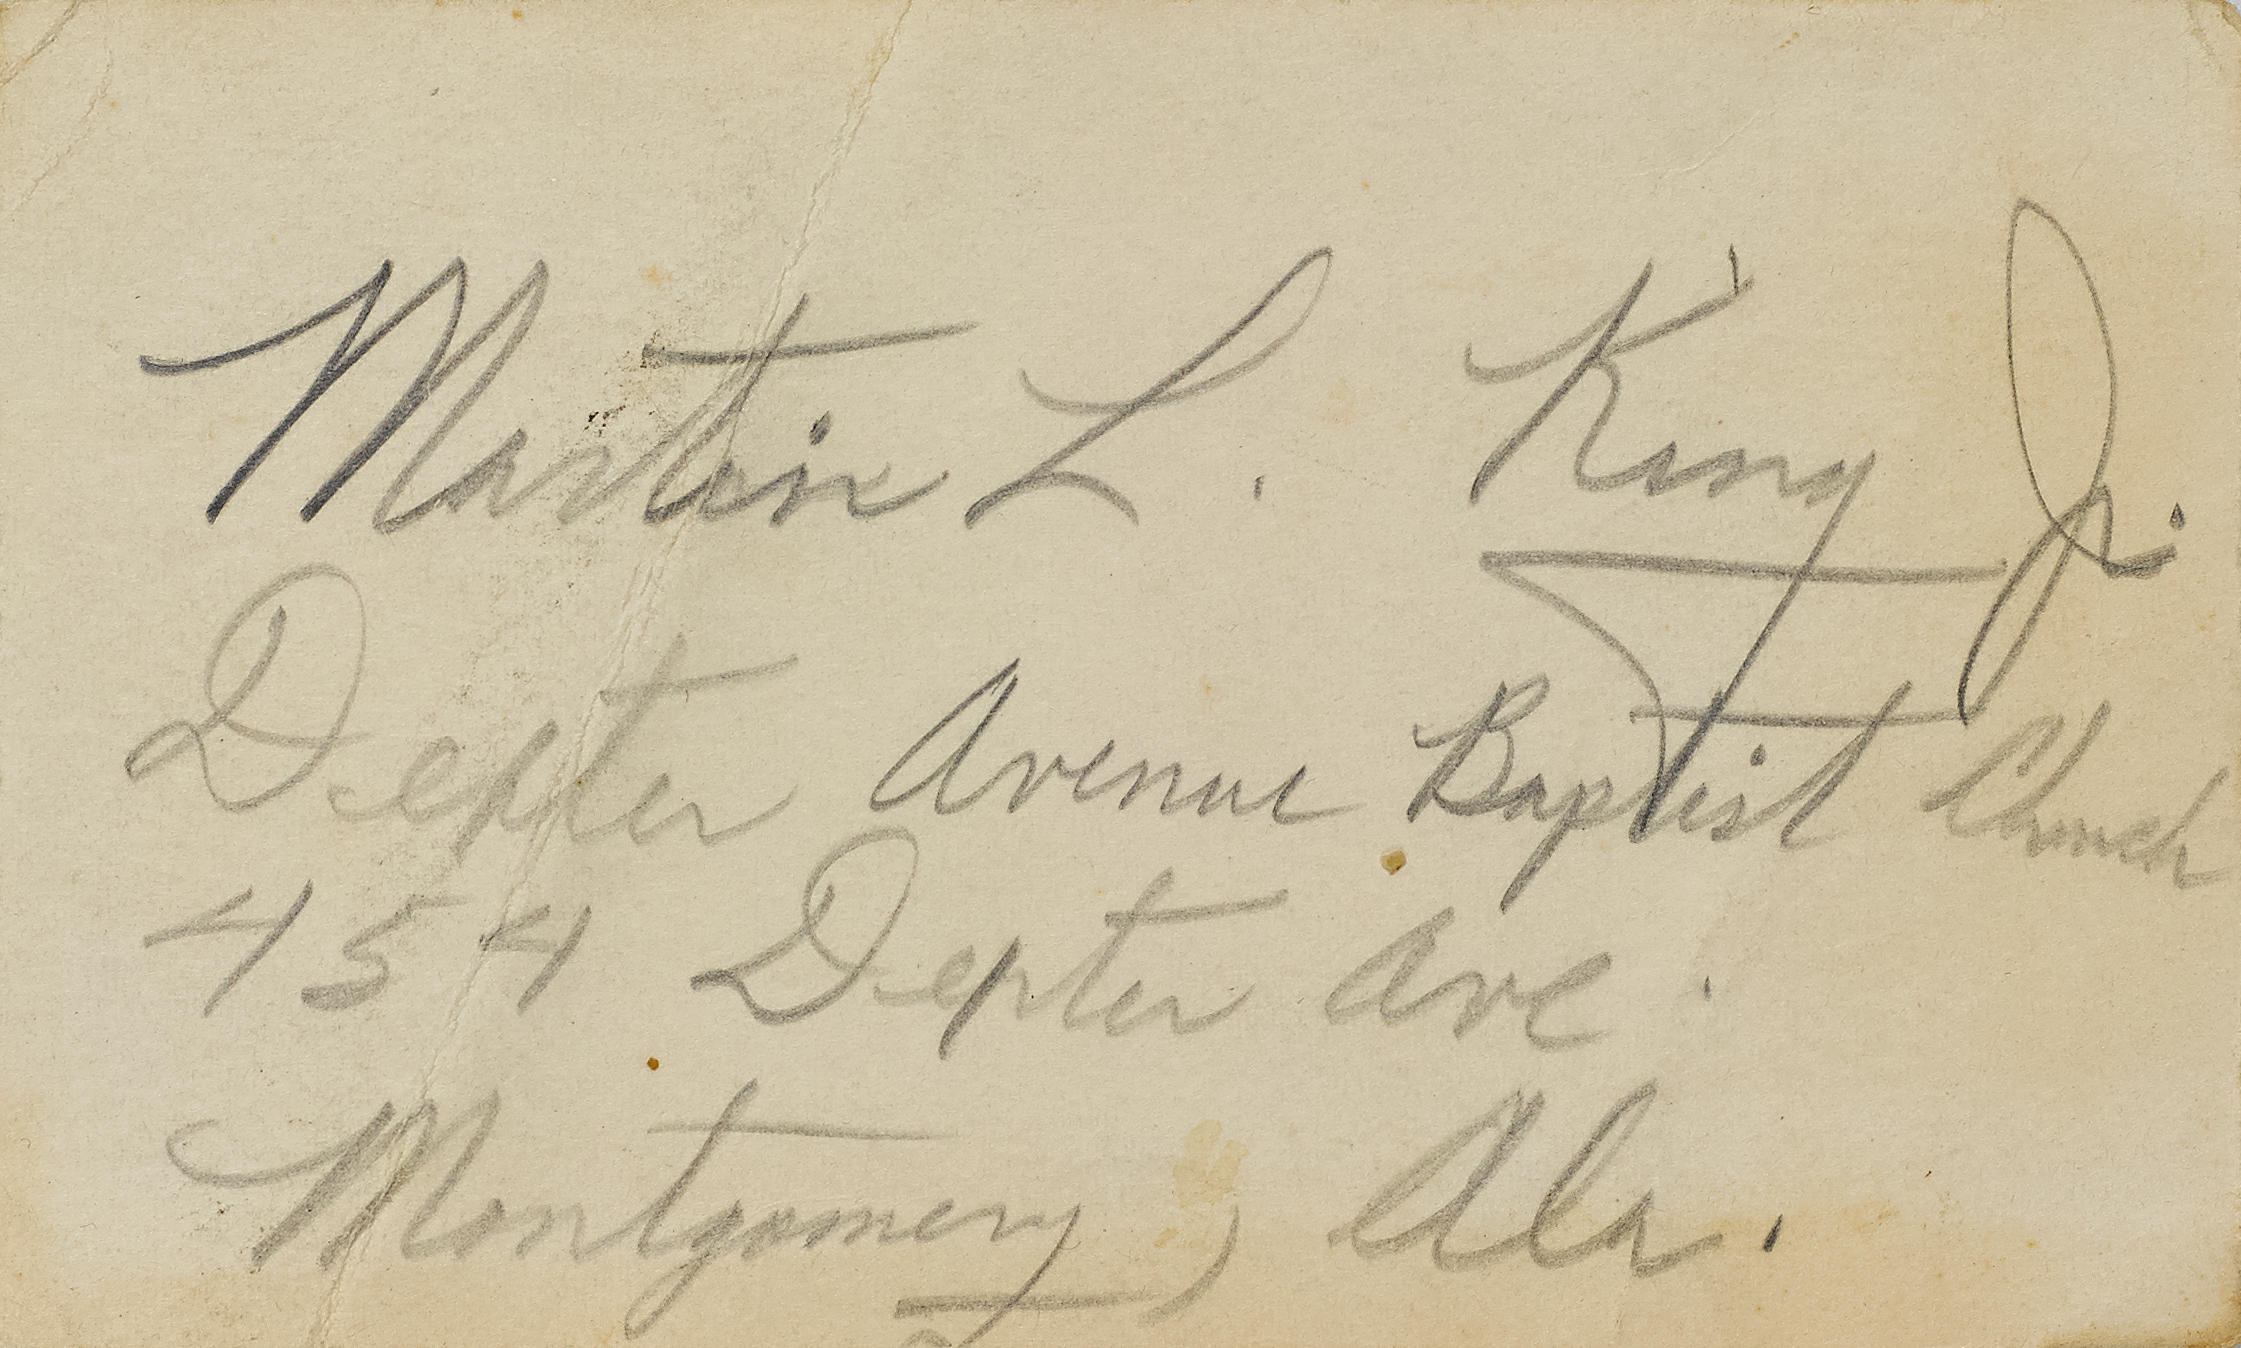 Martin L. King Jr.
Dexter Avenue Baptist Church
454 Dexter Ave.
Montgomery, Ala.